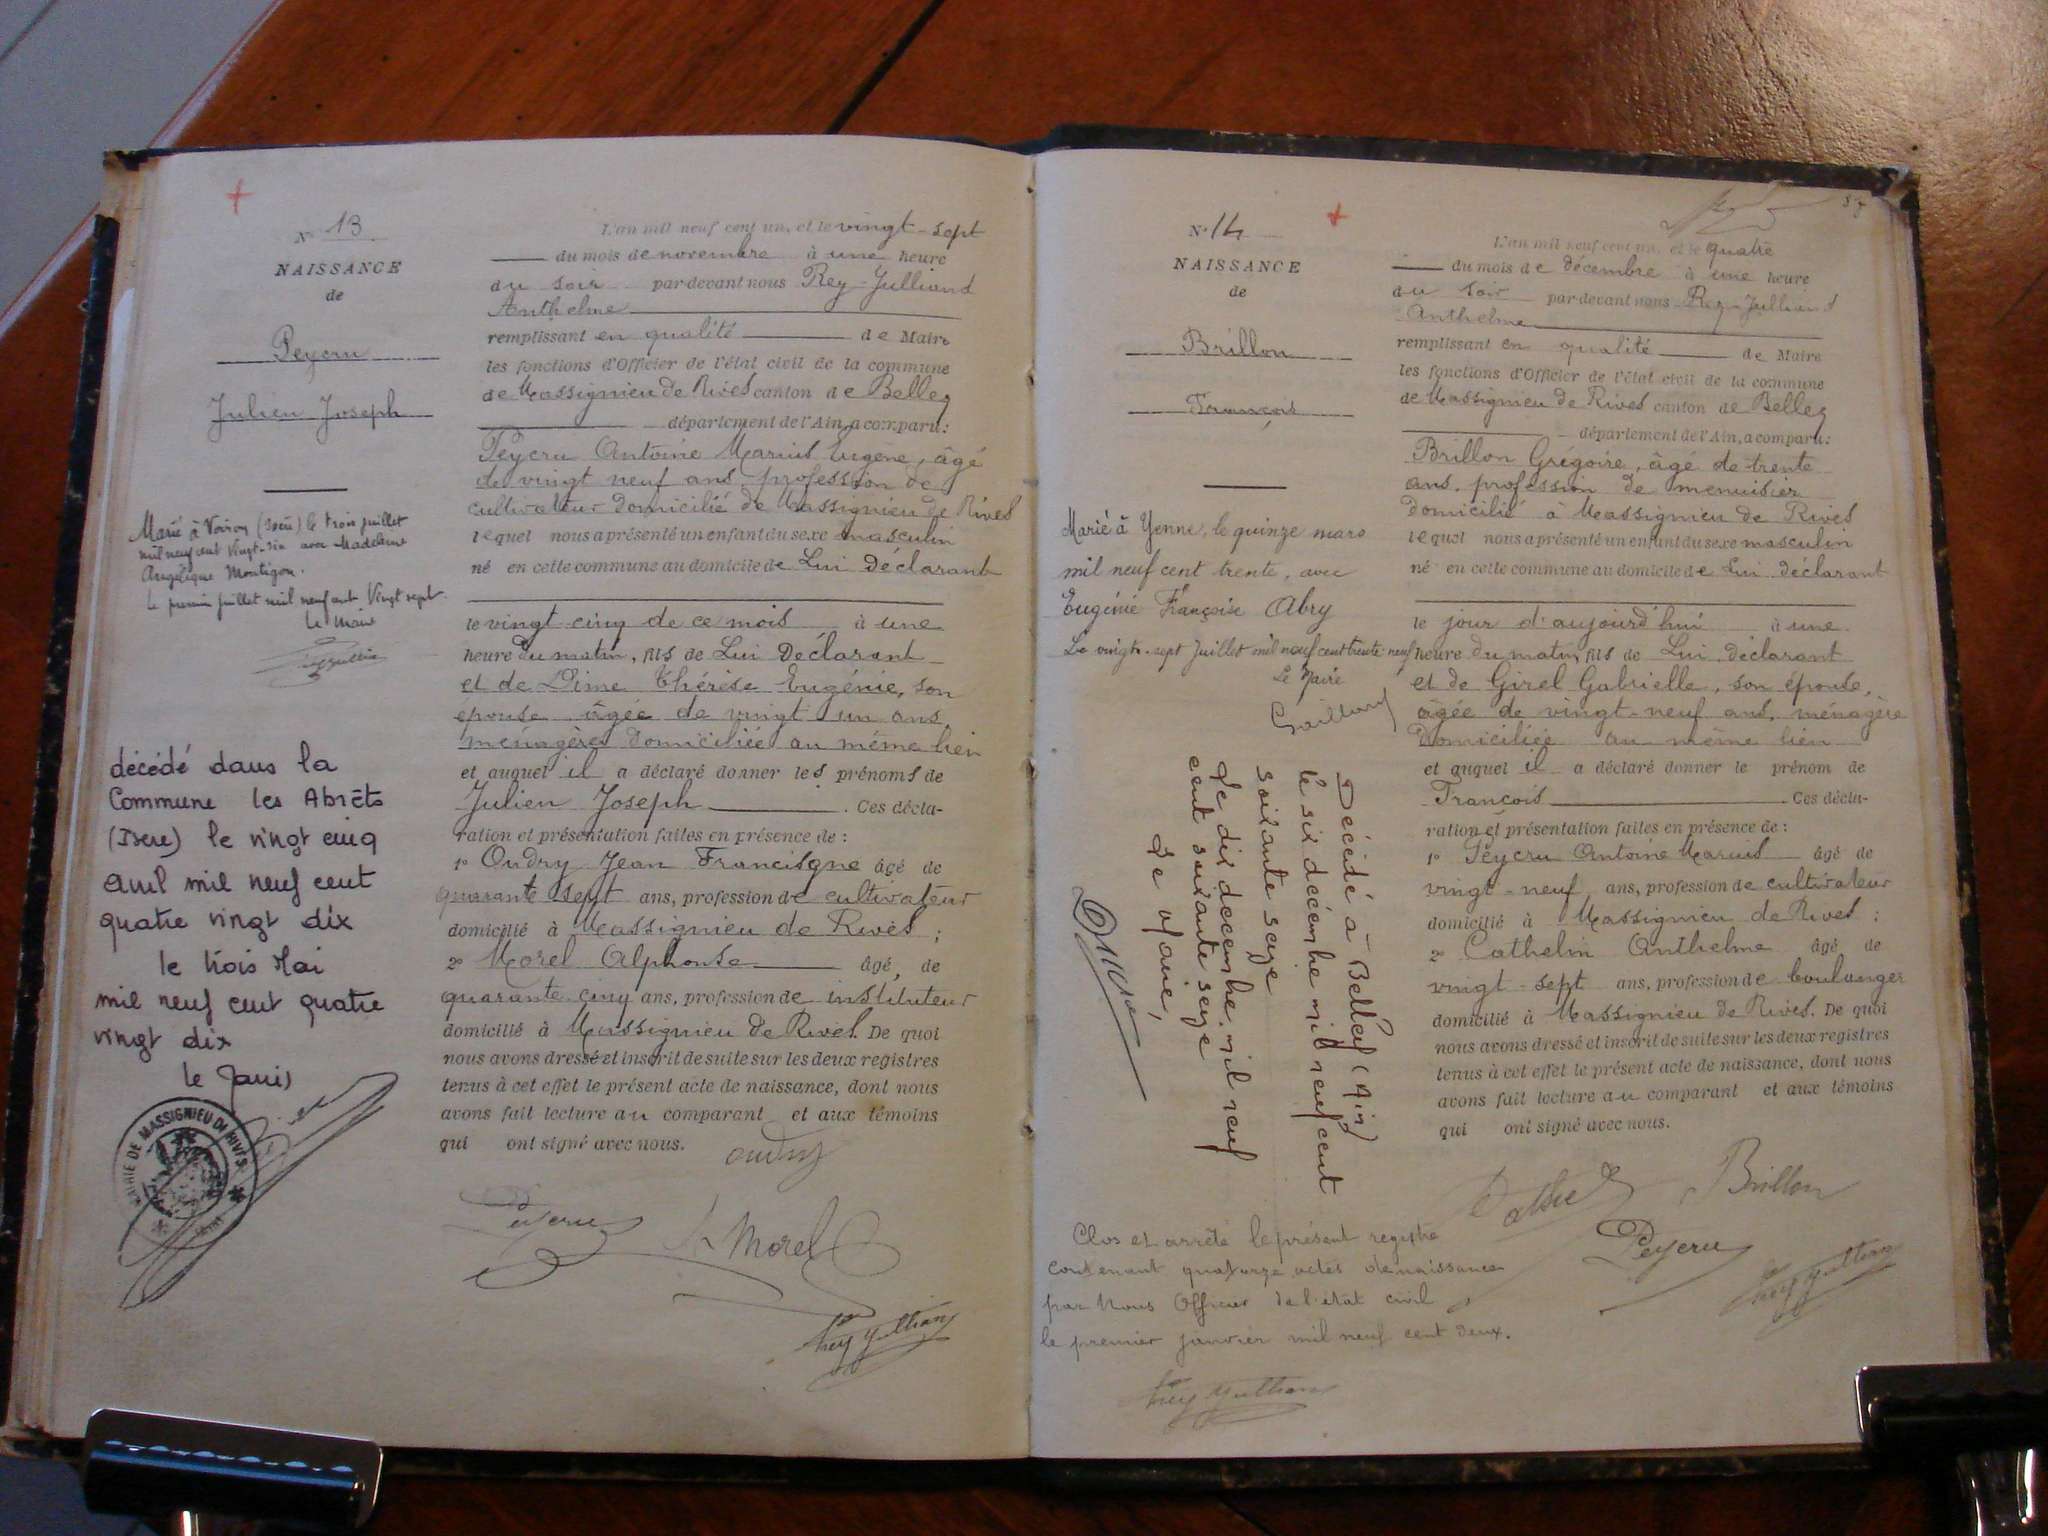 N° 13
NAISSANCE
de
Peycru
Julien Joseph
Marié à Voiron (Isère) le trois juillet
mil neuf cent vingt-six avec Madeleine
Angélique Montigon.
Le premier juillet mil neuf cent vingt sept
Le Maire
décédé dans la
Commune les Abrets
(Isère) le vingt cinq
avril mil neuf cent
quatre vingt dix
le trois Mai
mil neuf cent quatre
vingt dix
MAIRIE DE MASSIGNIEU DE RIVES
L'an mil neuf cent un, et le vingt-sept
du mois de novembre à une heure
du soir par-devant nous Rey-Julliand
Anthelme
remplissant en qualité de Maire
les fonctions d'Officier de l'état civil de la commune
de Massignieu de Rives canton de Belley
département de l'Ain, a comparu:
Peycru Antoine Marius Eugène, âgé
de vingt neuf ans, profession de
cultivateur domicilié de Massignieu de Rives
lequel nous a présenté un enfant du sexe masculin
né en cette commune au domicile de Lui Déclarant
le vingt cinq de ce mois à une
heure du matin, fils de Lui Déclarant
et de Dime Thérèse Eugénie, son
épouse âgée de vingt un ans
ménagère domiciliée au même lieu
et auquel il a déclaré donner les prénoms de
Julien Joseph. Ces décla-
ration et présentation faites en présence de:
1° Oudry Jean Francisque âgé de
quarante sept ans, profession de cultivateur
domicilié à Massignieu de Rives;
2° Morel Alphonse âgé, de
quarante cinq ans, profession de instituteur
domicilié à Massignieu de Rives. De quoi
nous avons dressé et inscrit de suite sur les deux registres
tenus à cet effet le présent acte de naissance, dont nous
avons fait lecture au comparant et aux témoins
qui ont signé avec nous.
Oudry
Peycru
Morel
Rey Julliand
N° 14
NAISSANCE
de
Brillon
François
Marié à Yenne, le quinze mars
mil neuf cent trente, avec
Eugénie Françoise Abry
Le vingt-sept Juillet mil neuf cent trente-neuf
Le Maire
Gaillard
Décédé à Belley (Ain)
le six décembre mil neuf cent
soixante seize
Le dix décembre mil neuf
cent soixante seize
Le Maire,
L'an mil neuf cent un, et le quatre
du mois de décembre à une heure
du soir par-devant nous Rey-Julliand
Anthelme
remplissant en qualité de Maire
les fonctions d'Officier de l'état civil de la commune
de Massignieu de Rives canton de Belley
département de l'Ain, a comparu:
Brillon Grégoire, âgé de trente
ans, profession de menuisier
domicilié à Massignieu de Rives
lequel nous a présenté un enfant du sexe masculin
né en cette commune au domicile de Lui déclarant
le jour d'aujourd'hui à une
heure du matin, fils de Lui déclarant
et de Girel Gabrielle, son épouse,
âgée de vingt-neuf ans, ménagère
domiciliée au même lieu
et auquel il a déclaré donner le prénom de
François. Ces décla-
ration et présentation faites en présence de:
1° Peycru Antoine Marius âgé de
vingt-neuf ans, profession de cultivateur
domicilié à Massignieu de Rives;
2° Cathelin Anthelme âgé de
vingt-sept ans, profession de boulanger
domicilié à Massignieu de Rives. De quoi
nous avons dressé et inscrit de suite sur les deux registres
tenus à cet effet le présent acte de naissance, dont nous
avons fait lecture au comparant et aux témoins
qui ont signé avec nous.
Brillon
Peycru
Rey Julliand
Clos et arrêté le présent registre
contenant quatorze actes de naissance
par Nous Officier de l'état civil
le premier janvier mil neuf cent deux.
Rey Julliand